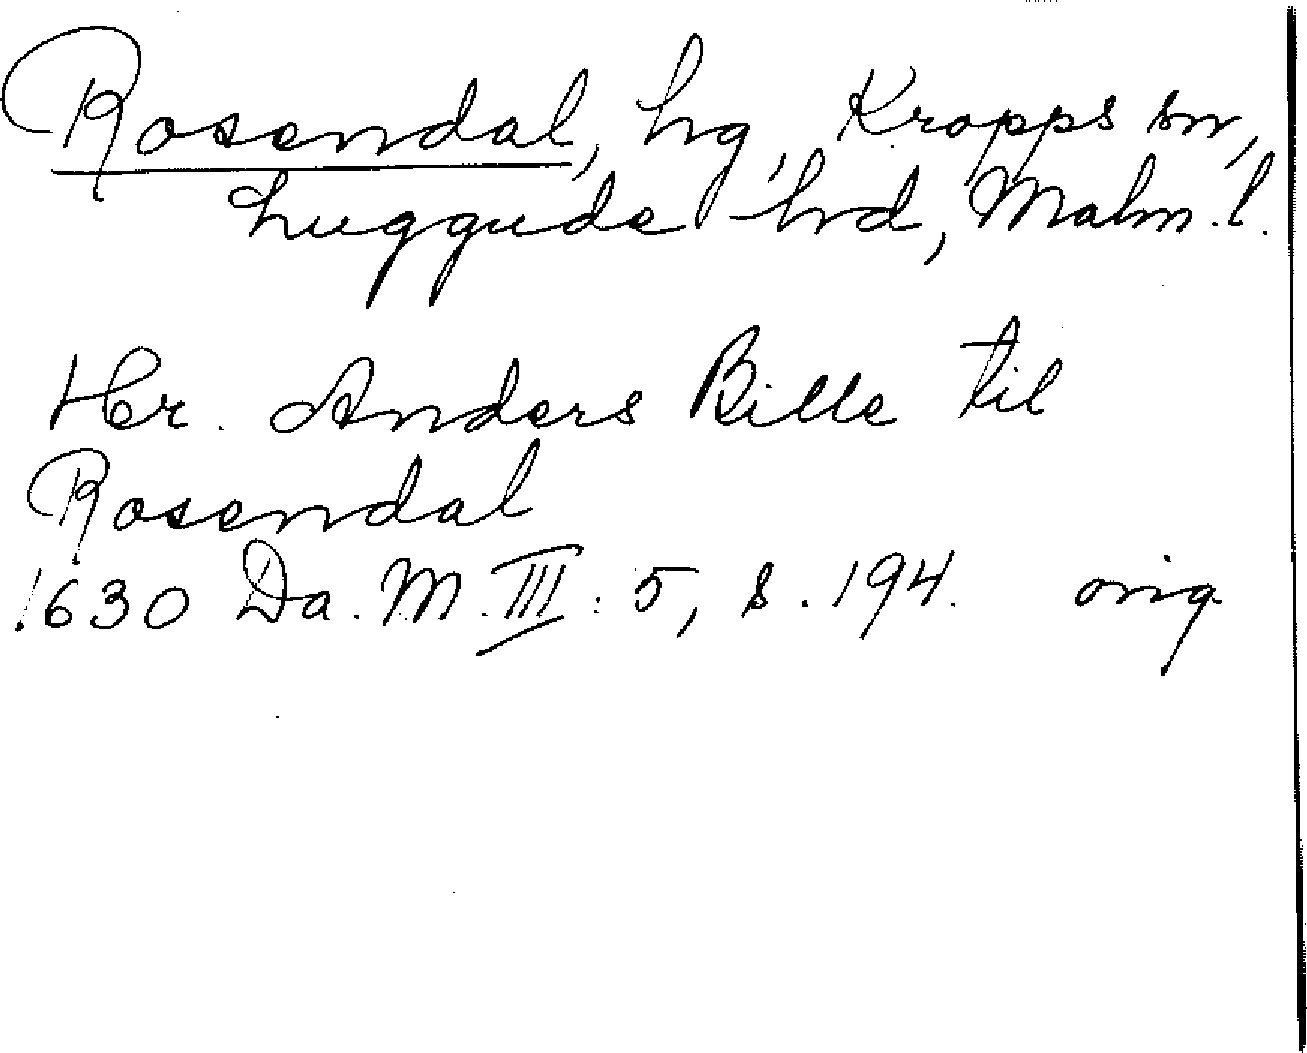 Rosendal, hg, Kropps sn,
Luggude hrd, Malm. l.
Her. Anders Bille til
Rosendal
1630 Da. M. III. 5, s. 194. orig